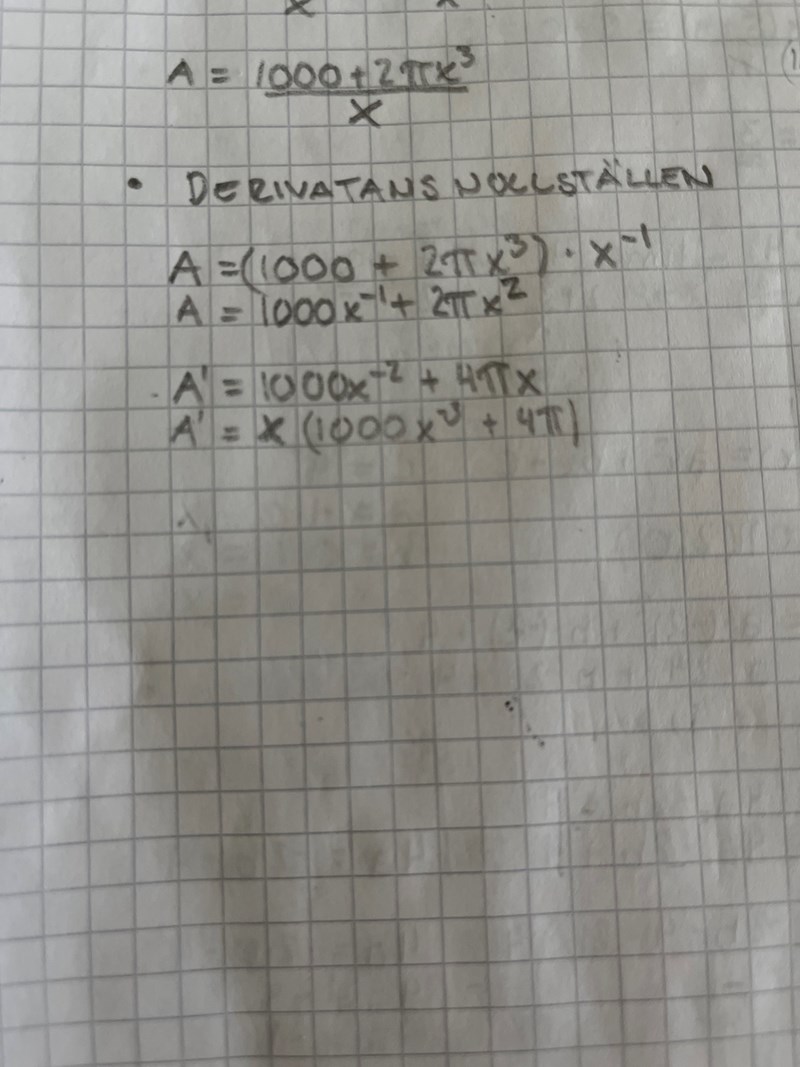 A = 1000+2πx³
x
• DERIVATANS NOLLSTÄLLEN
A =(1000 + 2πx³) · x⁻¹
A = 1000x⁻¹ + 2πx²
A' = 1000x⁻² + 4πx
A' = x (1000x⁻³ + 4π)